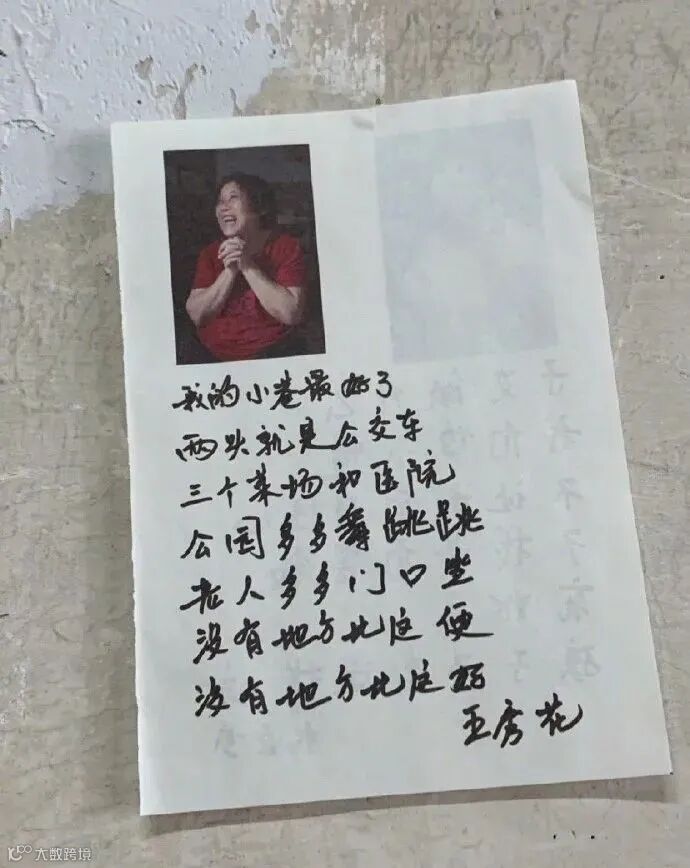 我的小巷最好了
两头就是公交车
三个菜场和医院
公园多多舞跳跳
老人多多门口坐
没有地方比这便
没有地方比这好
王秀花
大数跨境